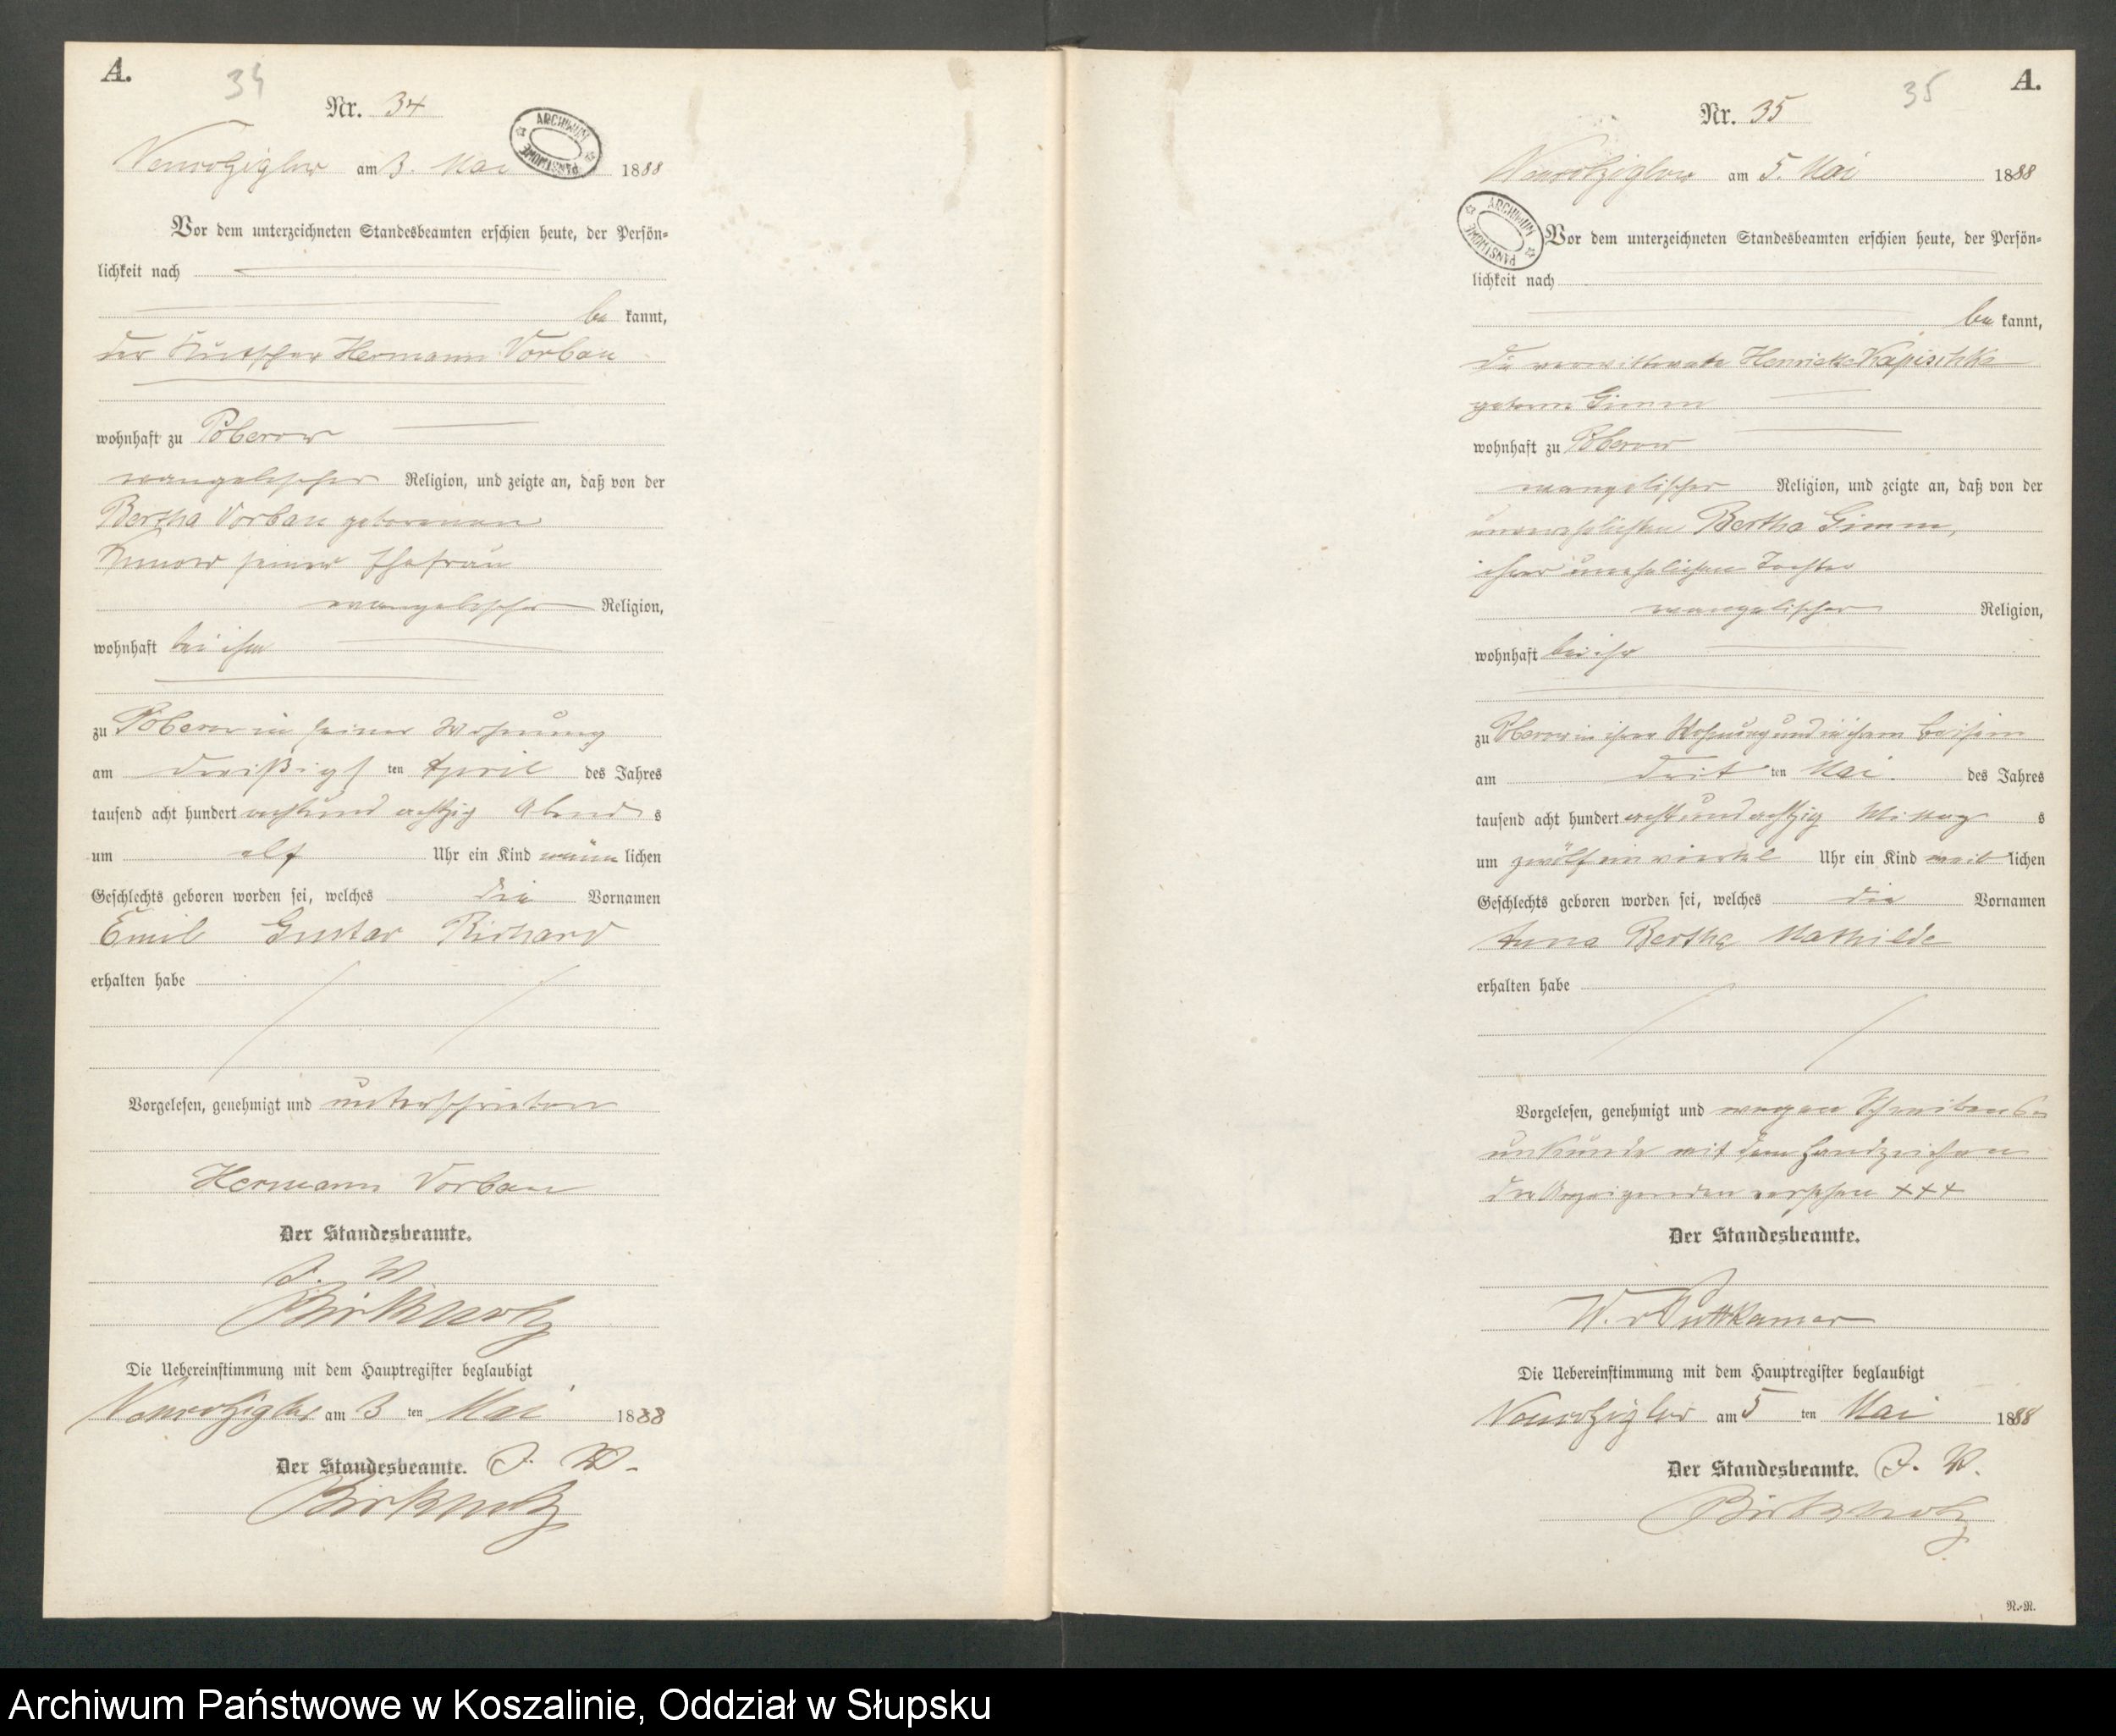 A.
34
Nr. 34
ARCHIWUM PAŃSTWOWE
am 3. Mai 1888
Vor dem unterzeichneten Standesbeamten erschien heute, der Persön-
lichkeit nach
be kannt,
der Kutscher Hermann Vorbau
wohnhaft zu Poberow
evangelischer Religion, und zeigte an, daß von der
Bertha Vorbau geborenen
seiner Ehefrau
evangelischer Religion,
wohnhaft bei ihm
zu Poberow in seiner Wohnung
am dreißigs ten April des Jahres
tausend acht hundert achtund achtzig Abend s
um elf Uhr ein Kind männ lichen
Geschlechts geboren worden sei, welches die Vornamen
Emil Gustav Richard
erhalten habe
Vorgelesen, genehmigt und unterschrieben
Hermann Vorbau
Der Standesbeamte.
J. V.
Die Uebereinstimmung mit dem Hauptregister beglaubigt
am 3 ten Mai 1888
Der Standesbeamte. J. V.
A.
35
Nr. 35
ARCHIWUM PAŃSTWOWE
am 5. Mai 1888
Vor dem unterzeichneten Standesbeamten erschien heute, der Persön-
lichkeit nach
be kannt,
die verwittwete Henriette Kapischke
geborne Gimm
wohnhaft zu Poberow
evangelischer Religion, und zeigte an, daß von der
unverehelichten Bertha Gimm,
ihrer unehelichen Tochter
evangelischer Religion,
wohnhaft bei ihr
zu Poberow in ihrer Wohnung und in ihrem Beisein
am dritt ten Mai des Jahres
tausend acht hundert achtundachtzig Mittag s
um zwölfeinviertel Uhr ein Kind weib lichen
Geschlechts geboren worden sei, welches die Vornamen
Anna Bertha Mathilde
erhalten habe
Vorgelesen, genehmigt und wegen Schreibens-
unkunde mit dem Handzeichen
der Anzeigenden versehen +++
Der Standesbeamte.
W. v Puttkamer
Die Uebereinstimmung mit dem Hauptregister beglaubigt
am 5 ten Mai 1888
Der Standesbeamte. J. V.
N.-N.
Archiwum Państwowe w Koszalinie, Oddział w Słupsku